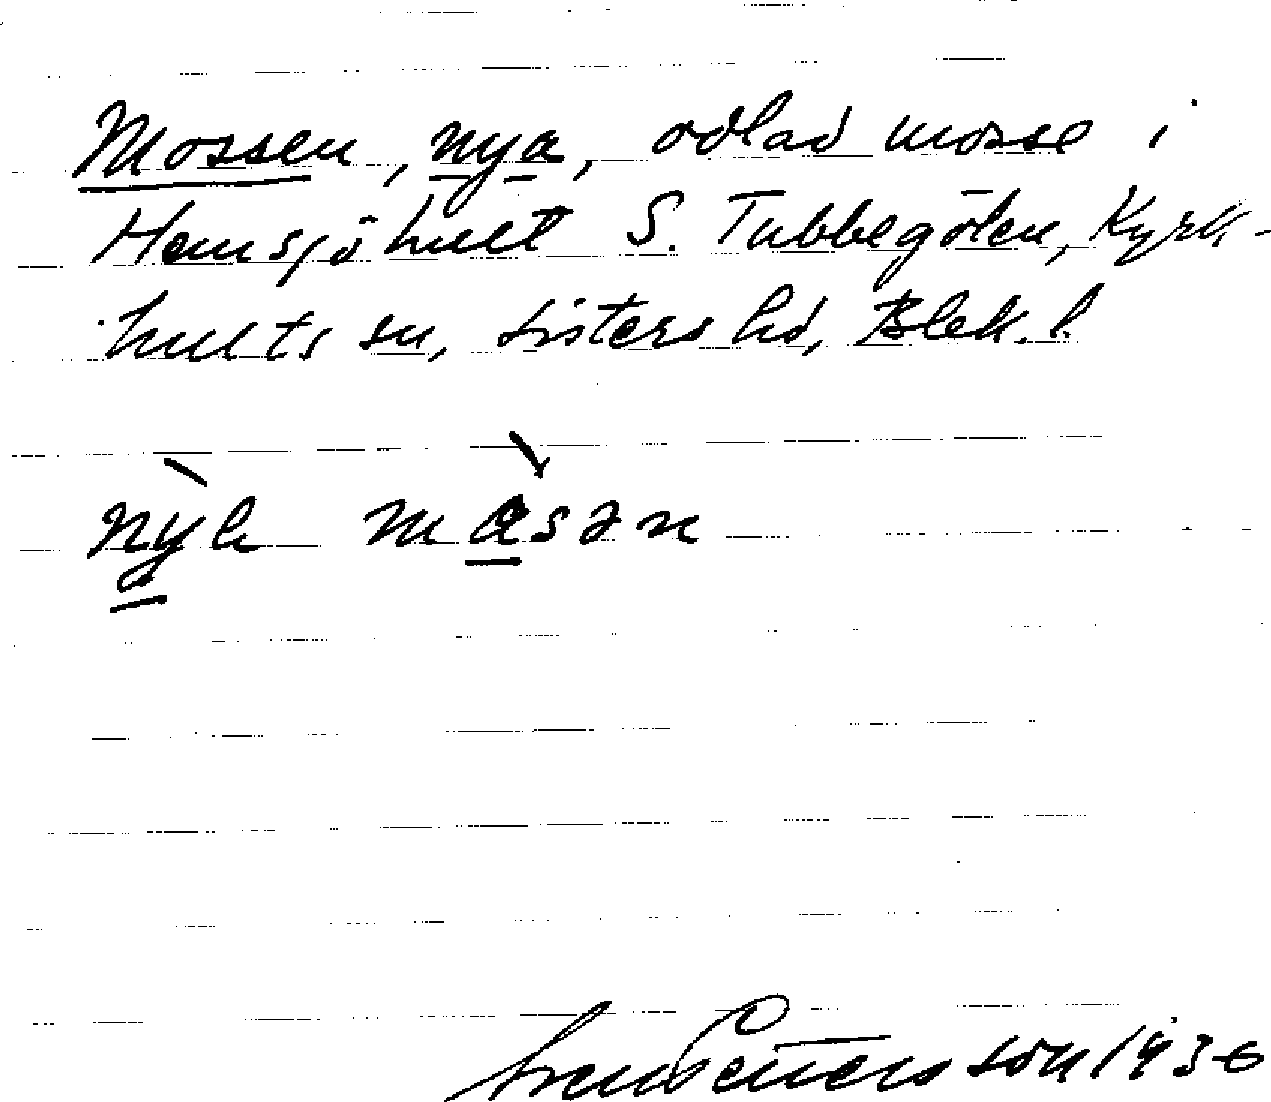 Mossen, nya, odlad mosse i
Hemsjöhult S. Tubbegölen, Kyrk-
hults sn, Listers hd, Blek. l.
nya måsən
Sven Pettersson 1936